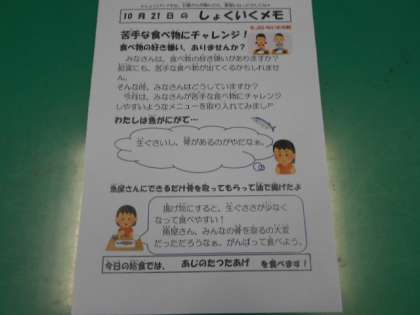 10月21日の しょくいくメモ
苦手な食べ物にチャレンジ！
食べ物の好き嫌い、ありませんか？
みなさんは、食べ物の好き嫌いがありますか？
給食にも、苦手な食べ物が出てくるかもしれません。
そんな時、みなさんはどうしていますか？
今月は、みなさんが苦手な食べ物にチャレンジ
しやすいようなメニューを取り入れてみました
わたしは魚がにがて…
生ぐさいし、骨があるのがやだなぁ。
魚屋さんにできるだけ骨を取ってもらって油で揚げたよ
揚げ物にすると、生ぐささが少なく
なって食べやすい！
魚屋さん、みんなの骨を取るの大変
だっただろうなぁ。がんばって食べよう。
今日の給食では、 あじのたつたあげ を食べます！